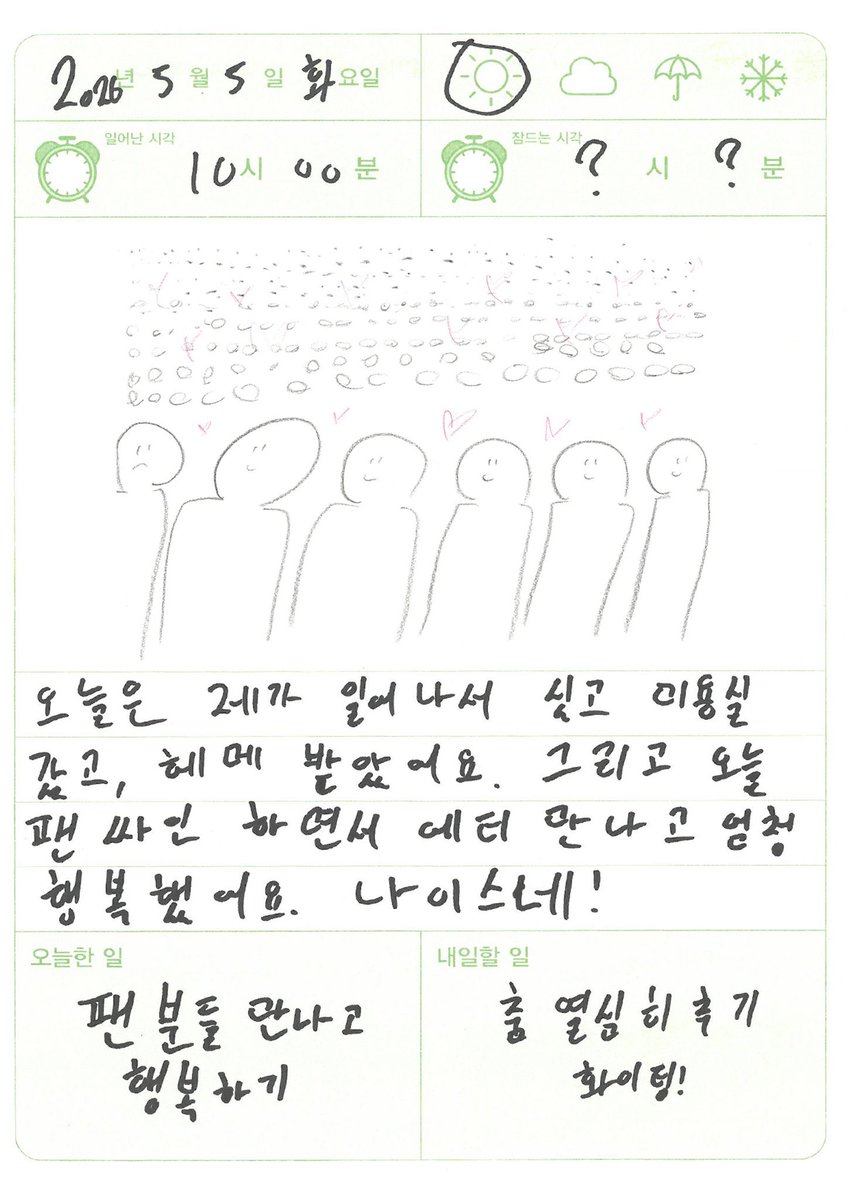 2026년 5월 5일 화요일
일어난 시각 10시 00분
잠드는 시각 ?시 ?분
오늘은 제가 일어나서 싯고 미용실
갔고, 헤메 받았어요. 그리고 오늘
팬싸인 하면서 에터 만나고 엄청
행복했어요. 나이스네!
오늘한 일
팬분들 만나고
행복하기
내일할 일
춤 열심히 추기
화이팅!